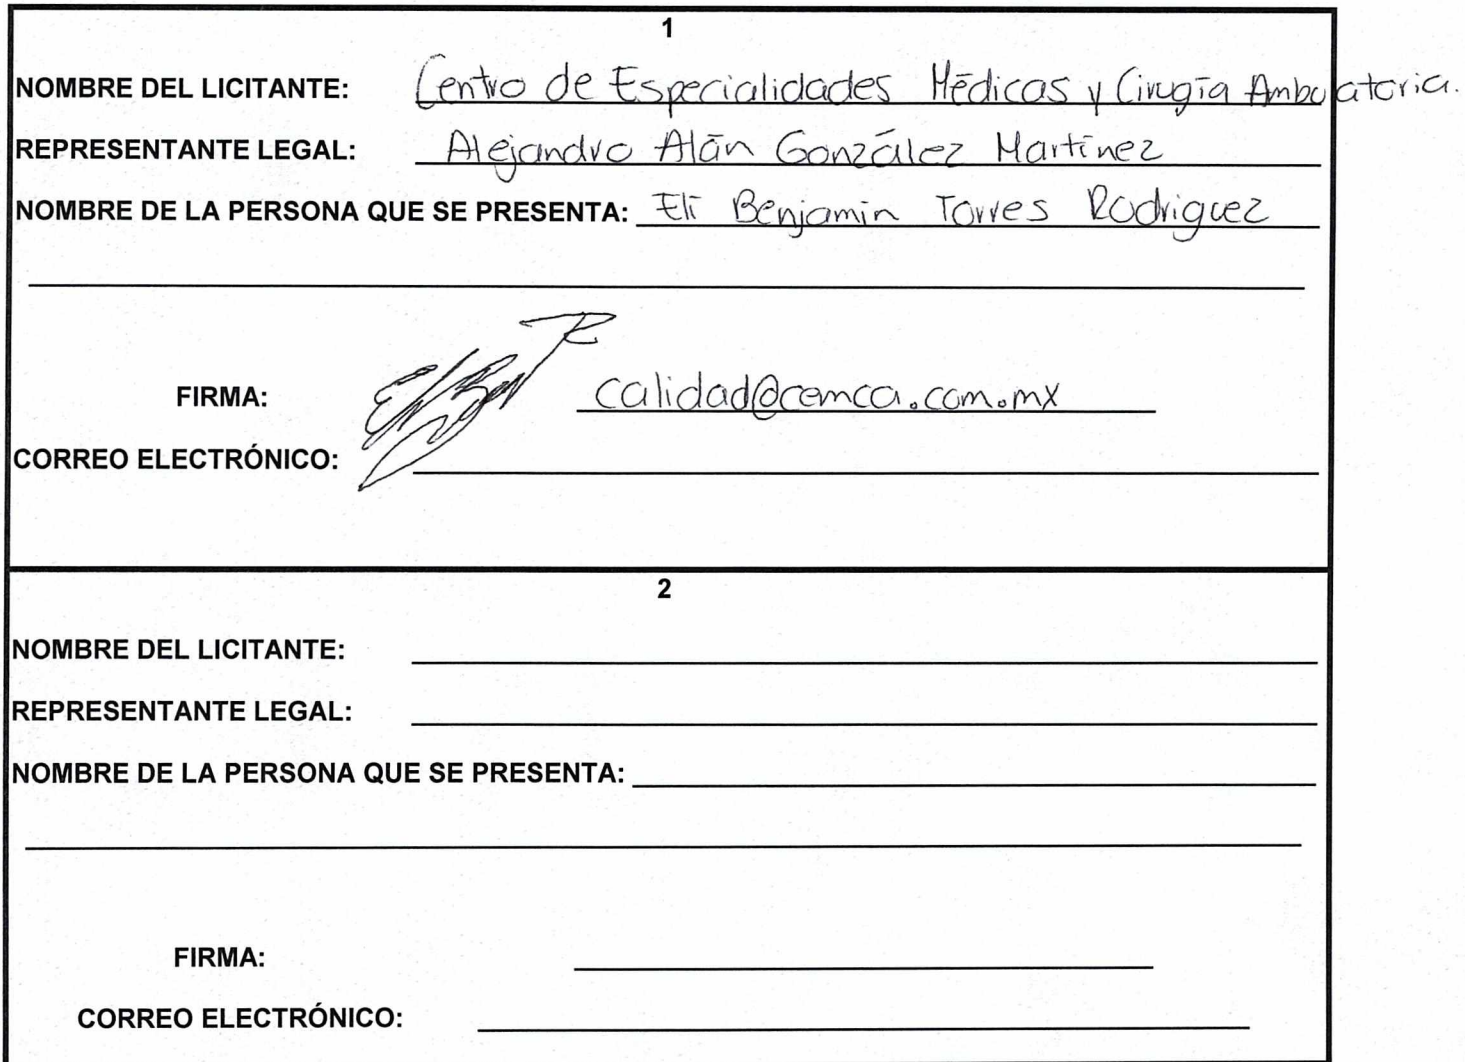 1
NOMBRE DEL LICITANTE: Centro de Especialidades Médicas y Cirugía Ambulatoria.
REPRESENTANTE LEGAL: Alejandro Alán González Martínez
NOMBRE DE LA PERSONA QUE SE PRESENTA: Elí Benjamin Torres Rodriguez
FIRMA: calidad@cemca.com.mx
CORREO ELECTRÓNICO:
2
NOMBRE DEL LICITANTE:
REPRESENTANTE LEGAL:
NOMBRE DE LA PERSONA QUE SE PRESENTA:
FIRMA:
CORREO ELECTRÓNICO: